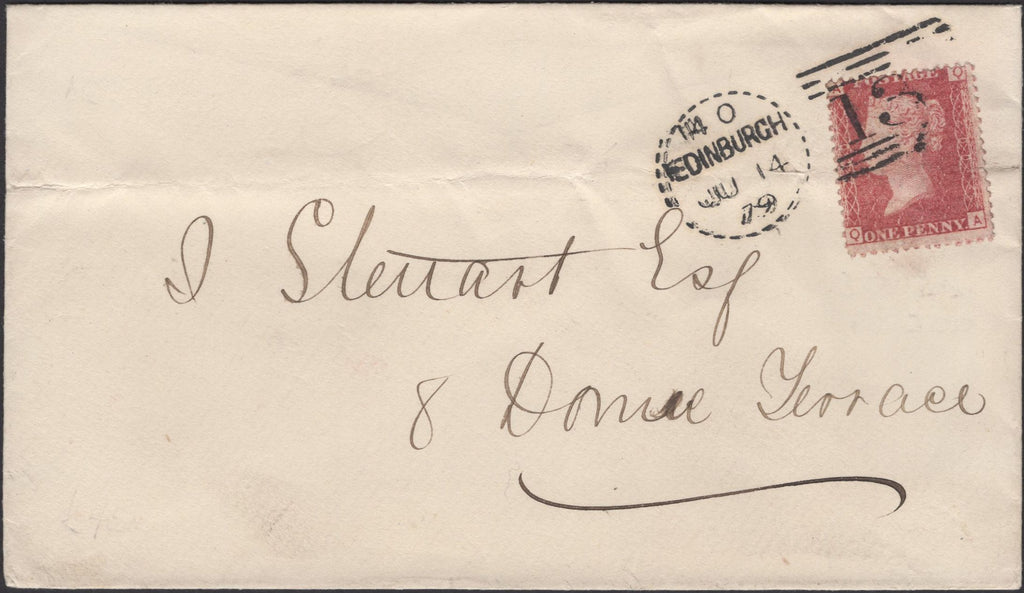 114 O
EDINBURGH
JU 14
79
131
POSTAGE
Q
ONE PENNY
Q A
J Stewart Esq
8 Doune Terrace